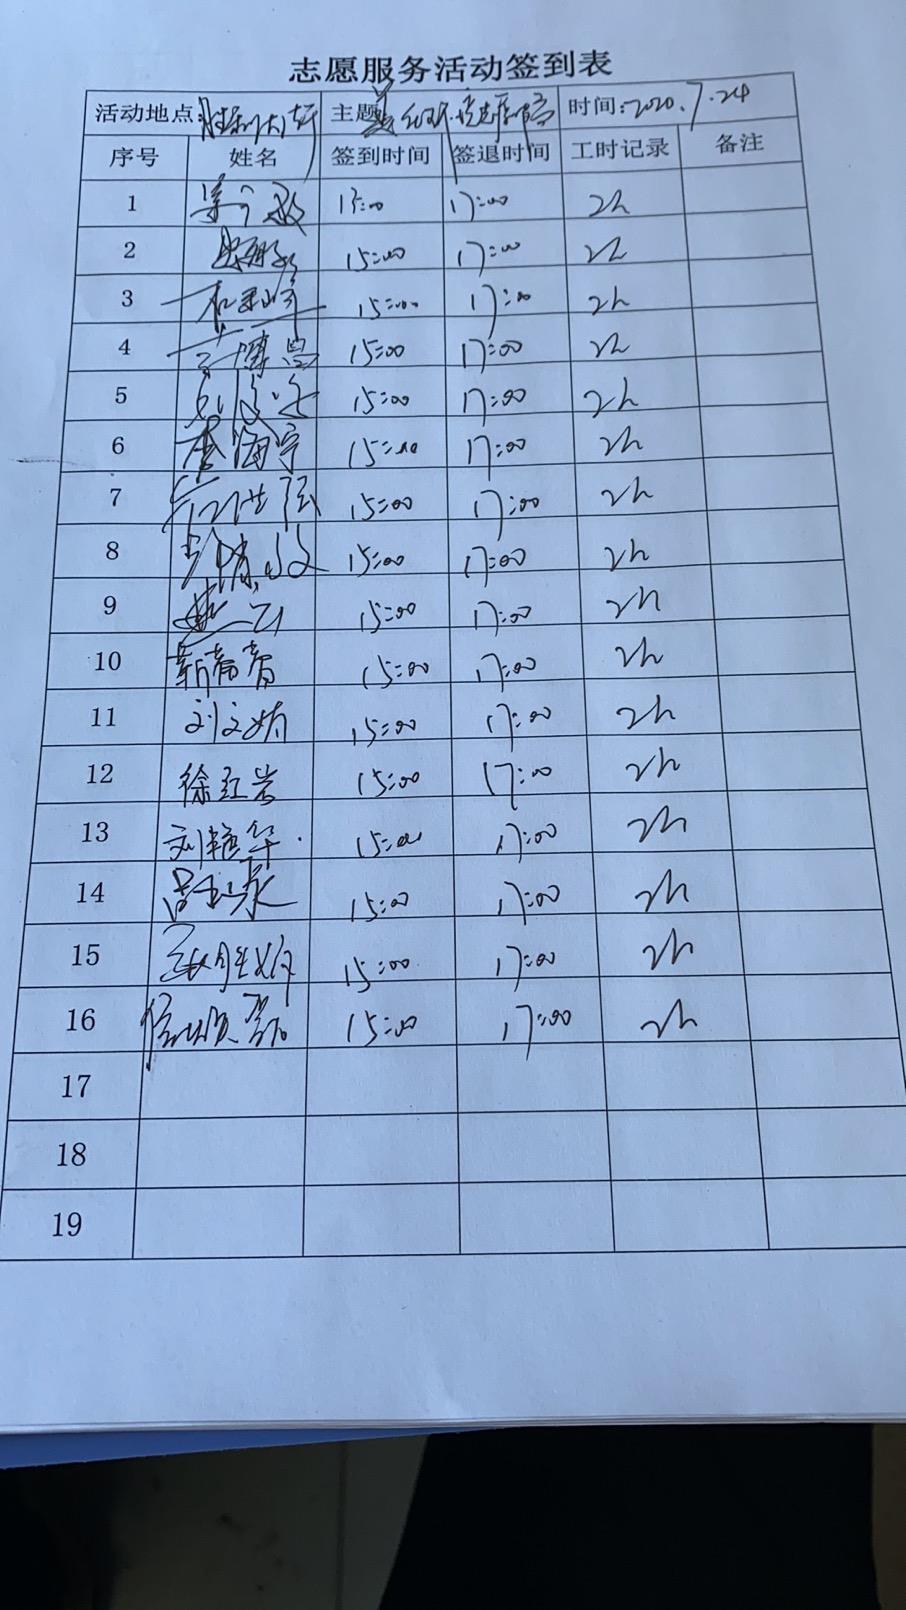 志愿服务活动签到表
活动地点: 胜利大街 主题: 时间:2020.7.24
序号 姓名 签到时间 签退时间 工时记录 备注
1 17:00 2h
2 15:00 17:00 2h
3 15:00 17:00 2h
4 15:00 17:00 2h
5 15:00 17:00 2h
6 李海宇 15:00 17:00 2h
7 15:00 17:00 2h
8 15:00 17:00 2h
9 15:00 17:00 2h
10 靳春香 15:00 17:00 2h
11 刘文娟 15:00 17:00 2h
12 徐红岩 15:00 17:00 2h
13 刘艳华 15:00 17:00 2h
14 15:00 17:00 2h
15 15:00 17:00 2h
16 15:00 17:00 2h
17
18
19